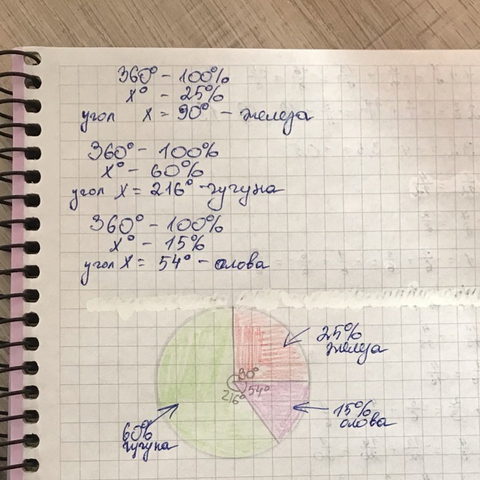 360° - 100%
x° - 25%
угол x = 90° - железа
360° - 100%
x° - 60%
угол x = 216° - чугуна
360° - 100%
x° - 15%
угол x = 54° - олова
25%
железа
90°
54°
216°
15%
олова
60%
чугуна